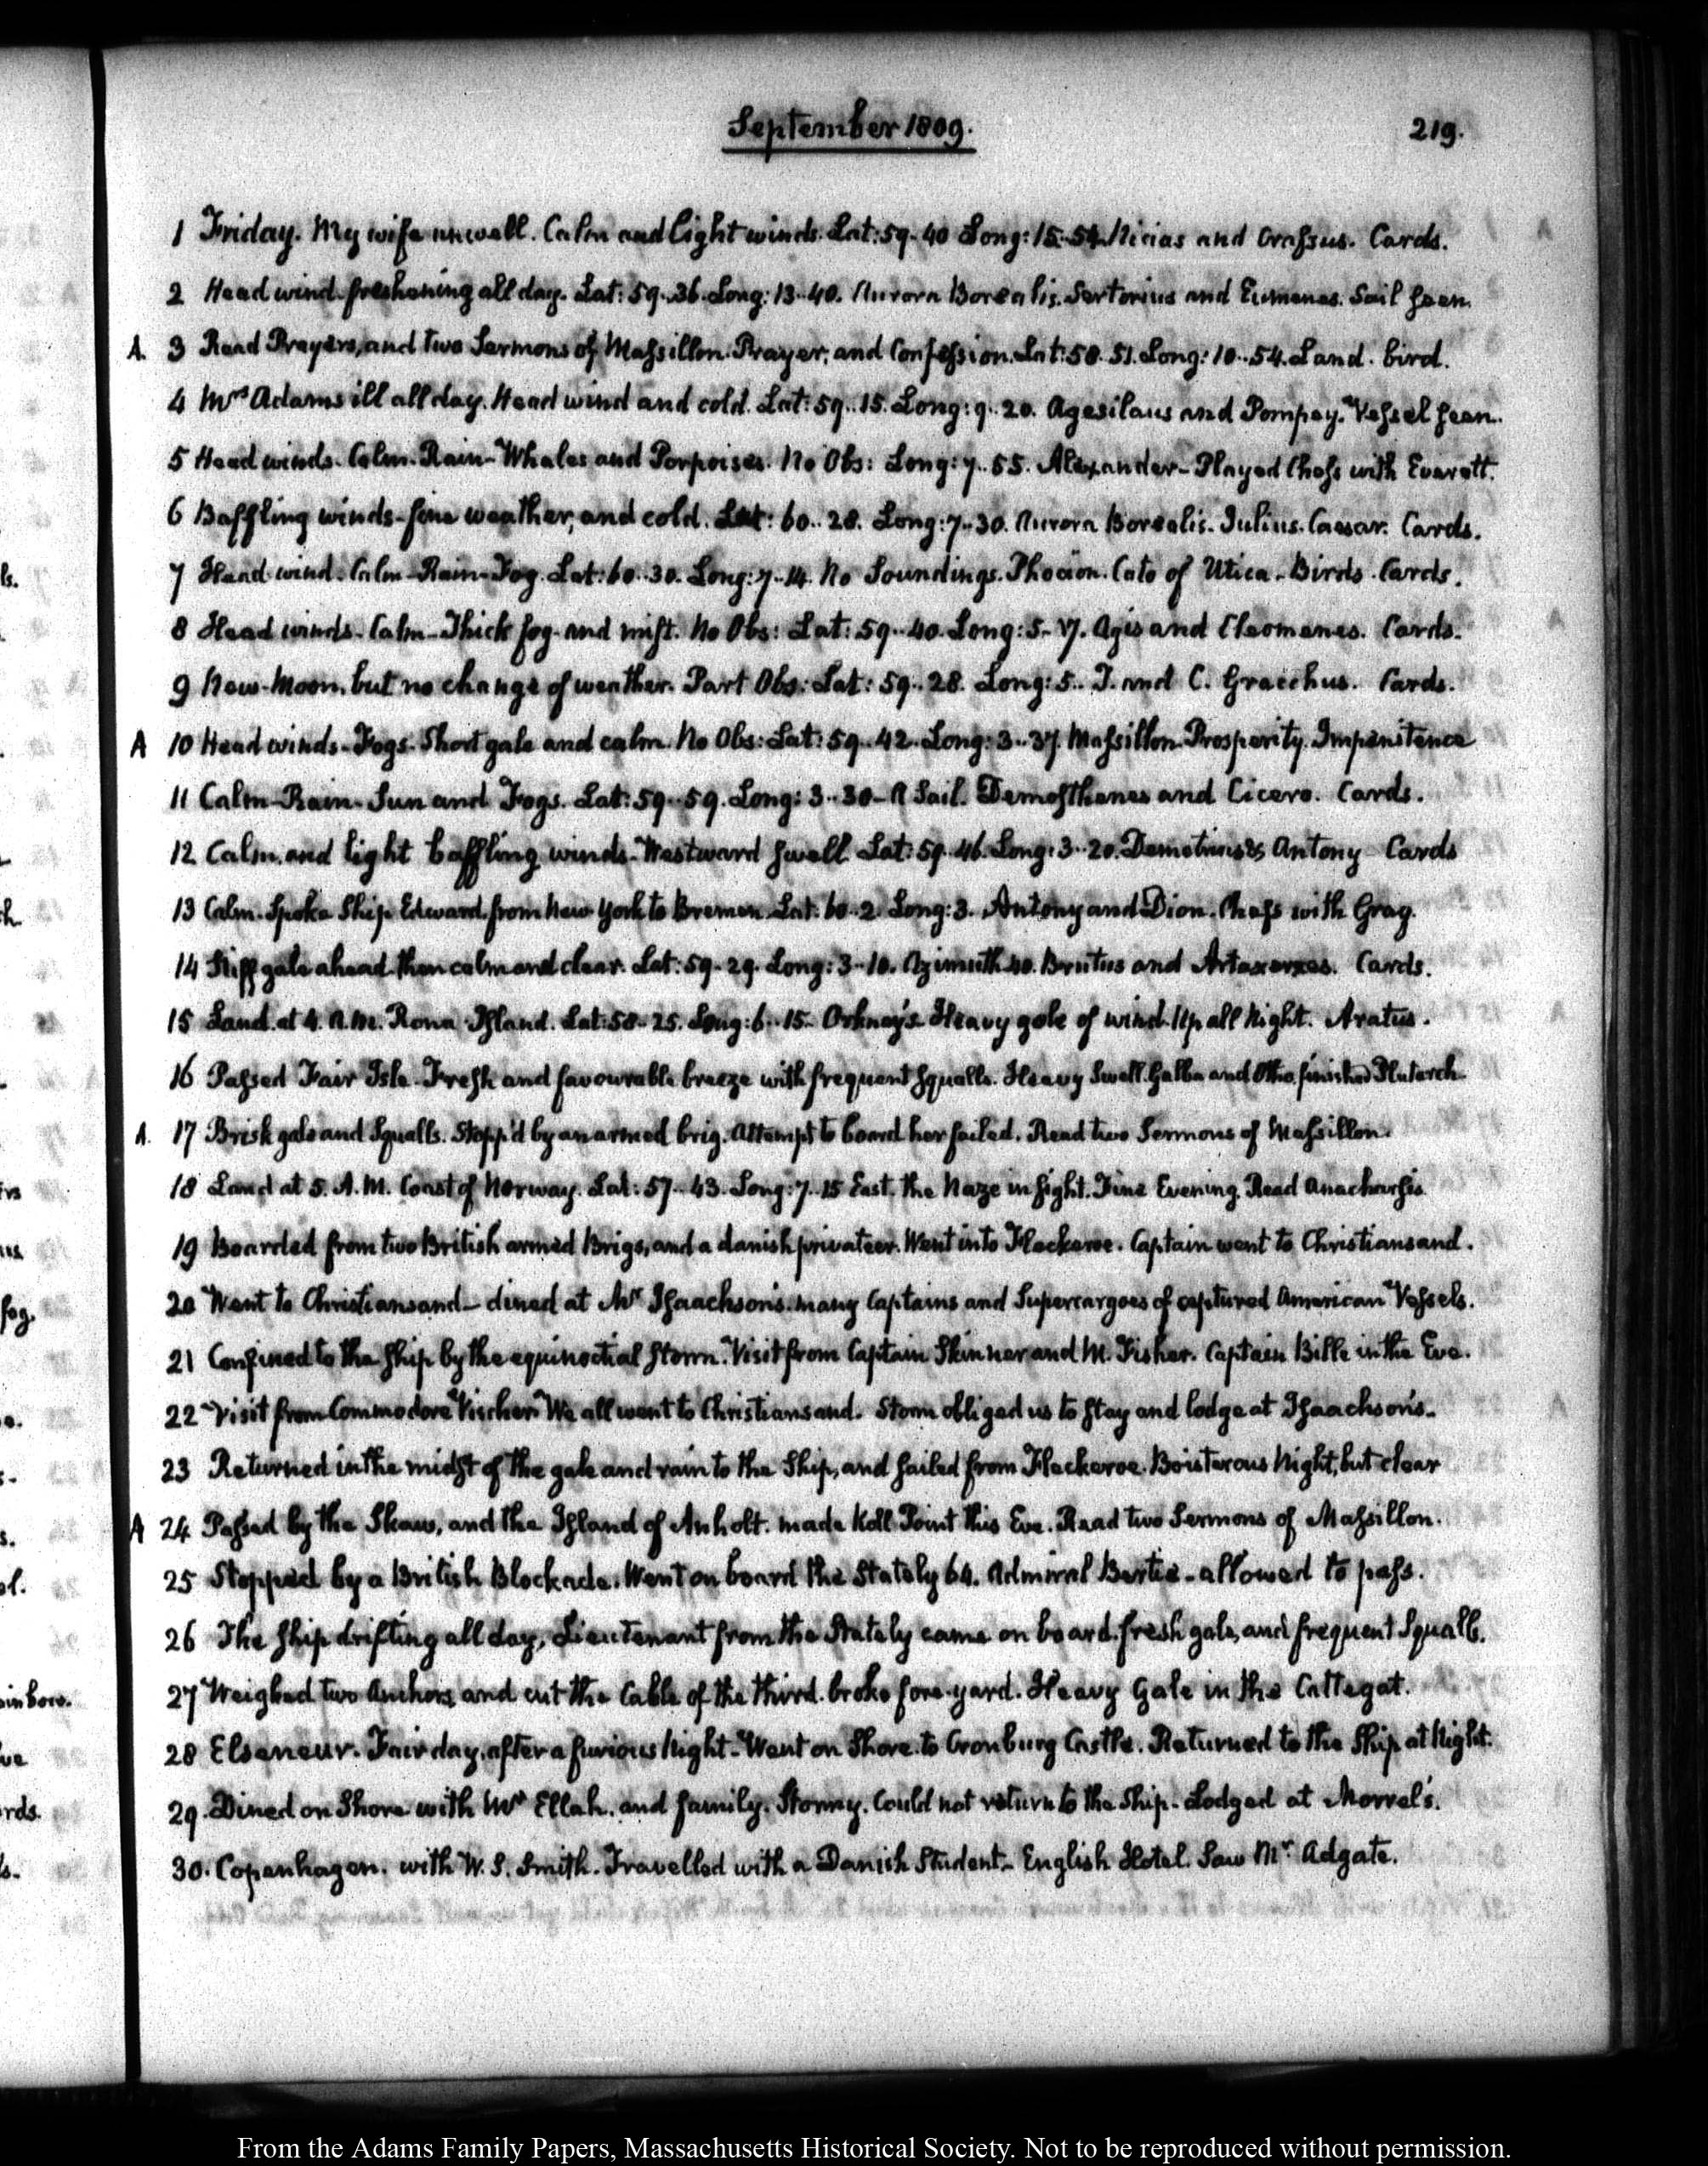 September 1809.
219.
1 Friday. My wife unwell. Calm and light winds. Lat: 59-40 Long: 15-54. Nicias and Crassus. Cards.
2 Head wind freshening all day. Lat: 59..36. Long: 13-40. Aurora Borealis. Sertorius and Eumenes. Sail seen.
A. 3 Read Prayers, and two Sermons of Massillon. Prayer, and Confession. Lat: 58. 51. Long: 10..54. Land. bird.
4 Mrs Adams ill all day. Head wind and cold. Lat: 59..15. Long: 9..20. Agesilaus and Pompey. Vessel seen.
5 Head winds. Calm. Rain- Whales and Porpoises. No Obs: Long: 7..55. Alexander- Played Chess with Everett.
6 Baffling winds- fine weather, and cold. Lat: 60..28. Long: 7-30. Aurora Borealis. Julius. Caesar. Cards.
7 Head wind. Calm- Rain- Fog. Lat: 60..30. Long: 7-14. No Soundings. Phocion. Cato of Utica- Birds. Cards.
8 Head winds- Calm- Thick fog and mist. No Obs: Lat: 59..40. Long: 5-17. Agis and Cleomenes. Cards.
9 New-Moon, but no change of weather. Part Obs: Lat: 59..28. Long: 5.. T. and C. Gracchus. Cards.
A 10 Head winds- Fogs. Short gale and calm. No Obs: Lat: 59..42. Long: 3..37. Massillon. Prosperity. Impenitence
11 Calm- Rain- Sun and Fogs. Lat: 59..59. Long: 3..30- A Sail. Demosthenes and Cicero. Cards.
12 Calm, and light baffling winds- Westward swell. Lat: 59..46. Long: 3..20. Demetrius & Antony Cards
13 Calm. Spoke Ship Edward from New York to Bremen. Lat: 60..2. Long: 3. Antony and Dion. Chess with Gray.
14 Stiff gale ahead then calm and clear. Lat: 59-29. Long: 3-10. Azimuth 40. Brutus and Artaxerxes. Cards.
15 Land at 4. A.M. Rona Island. Lat: 58-25. Long: 6..15- Orkney's. Heavy gale of wind. Up all Night. Aratus.
16 Passed Fair Isle. Fresh and favourable breeze with frequent squalls. Heavy Swell. Galba and Otho, finished Plutarch.
A. 17 Brisk gale and Squalls. Stopp'd by an armed brig. Attempt to board her failed. Read two Sermons of Massillon.
18 Land at 5. A.M. Coast of Norway. Lat: 57-43. Long: 7..15 East. The Naze in sight. Fine Evening. Read Anacharsis
19 Boarded from two British armed Brigs, and a danish privateer. Went into Fleckeroe. Captain went to Christiansand.
20 Went to Christiansand- dined at Mr Isaachson's. many Captains and Supercargoes of captured American Vessels.
21 Confined to the ship by the equinoctial storm. Visit from Captain Skinner and M. Fisher. Captain Bille in the Eve.
22 Visit from Commodore Vischer. We all went to Christiansand. Storm obliged us to stay and lodge at Isaachson's.
23 Returned in the midst of the gale and rain to the Ship, and sailed from Fleckeroe. Boisterous Night, but clear
A 24 Passed by the Skaw, and the Island of Anholt. made Koll Point this Eve. Read two Sermons of Massillon.
25 Stopped by a British Blockade. Went on board the Stately 64. Admiral Bertie- allowed to pass.
26 The ship drifting all day, Lieutenant from the Stately came on board. fresh gale, and frequent Squalls.
27 Weighed two Anchors, and cut the Cable of the third. broke fore-yard. Heavy Gale in the Cattegat.
28 Elseneur. Fair day, after a furious Night- Went on Shore to Cronburg Castle. Returned to the Ship at Night.
29. Dined on Shore with Mr Ellah, and family. Stormy. Could not return to the Ship- Lodged at Morrel's.
30. Copenhagen. with W. S. Smith. Travelled with a Danish Student- English Hotel. Saw Mr Adgate.
From the Adams Family Papers, Massachusetts Historical Society. Not to be reproduced without permission.